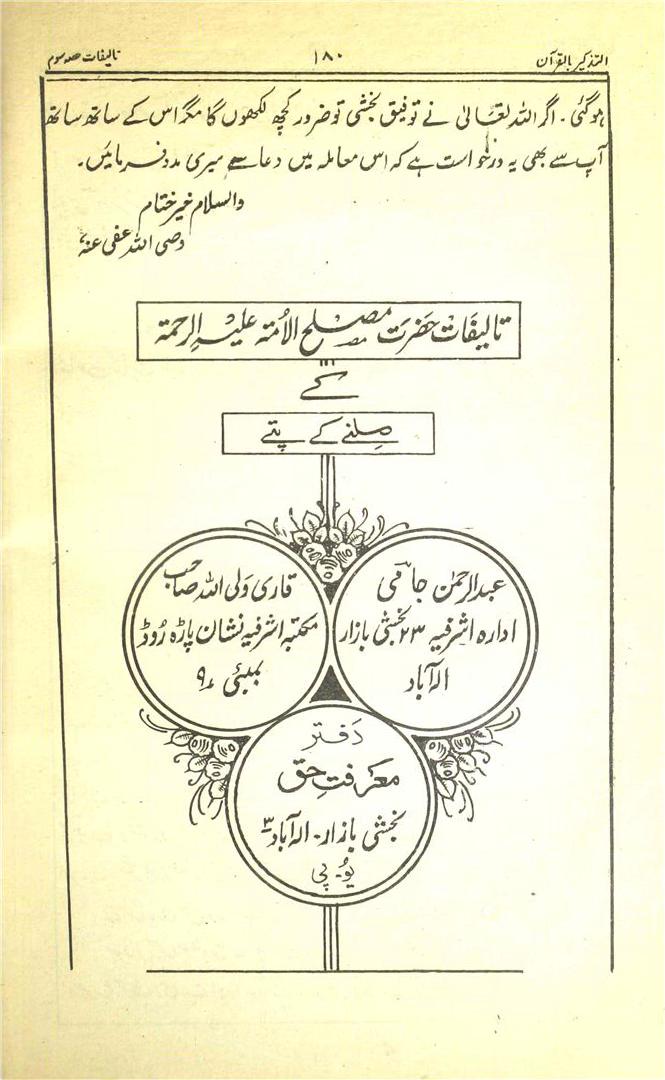 التذکیر بالقرآن
۱۸۰
تالیفات حصہ سوم
ہو گئی۔ اگر اللہ تعَالیٰ نے توفیق بخشی تو ضرور کچھ لکھوں گا مگر اس کے ساتھ ساتھ
آپ سے بھی یہ درخواست ہے کہ اس معاملہ میں دعا سے میری مدد فرمائیں۔
والسلام خیر ختام
وصی اللہ عفی عنہٗ
تالیفَات حضرَت مصلح الاُمّۃ علیہ الرحمۃ
کے
مِلنے کے پتے
عبدالرحمٰن جامیؔ
ادارہ اشرفیہ ۲۳ بخشی بازار
الٰہ آباد
قاری وَلی اللہ صاحب
مکتبہ اشرفیہ نشان پاڑہ رُوڈ
بمبئی ۹
دَفتر
معرفتِ حق
بخشی بازار۔ الٰہ آباد ۳
یُو۔ پی